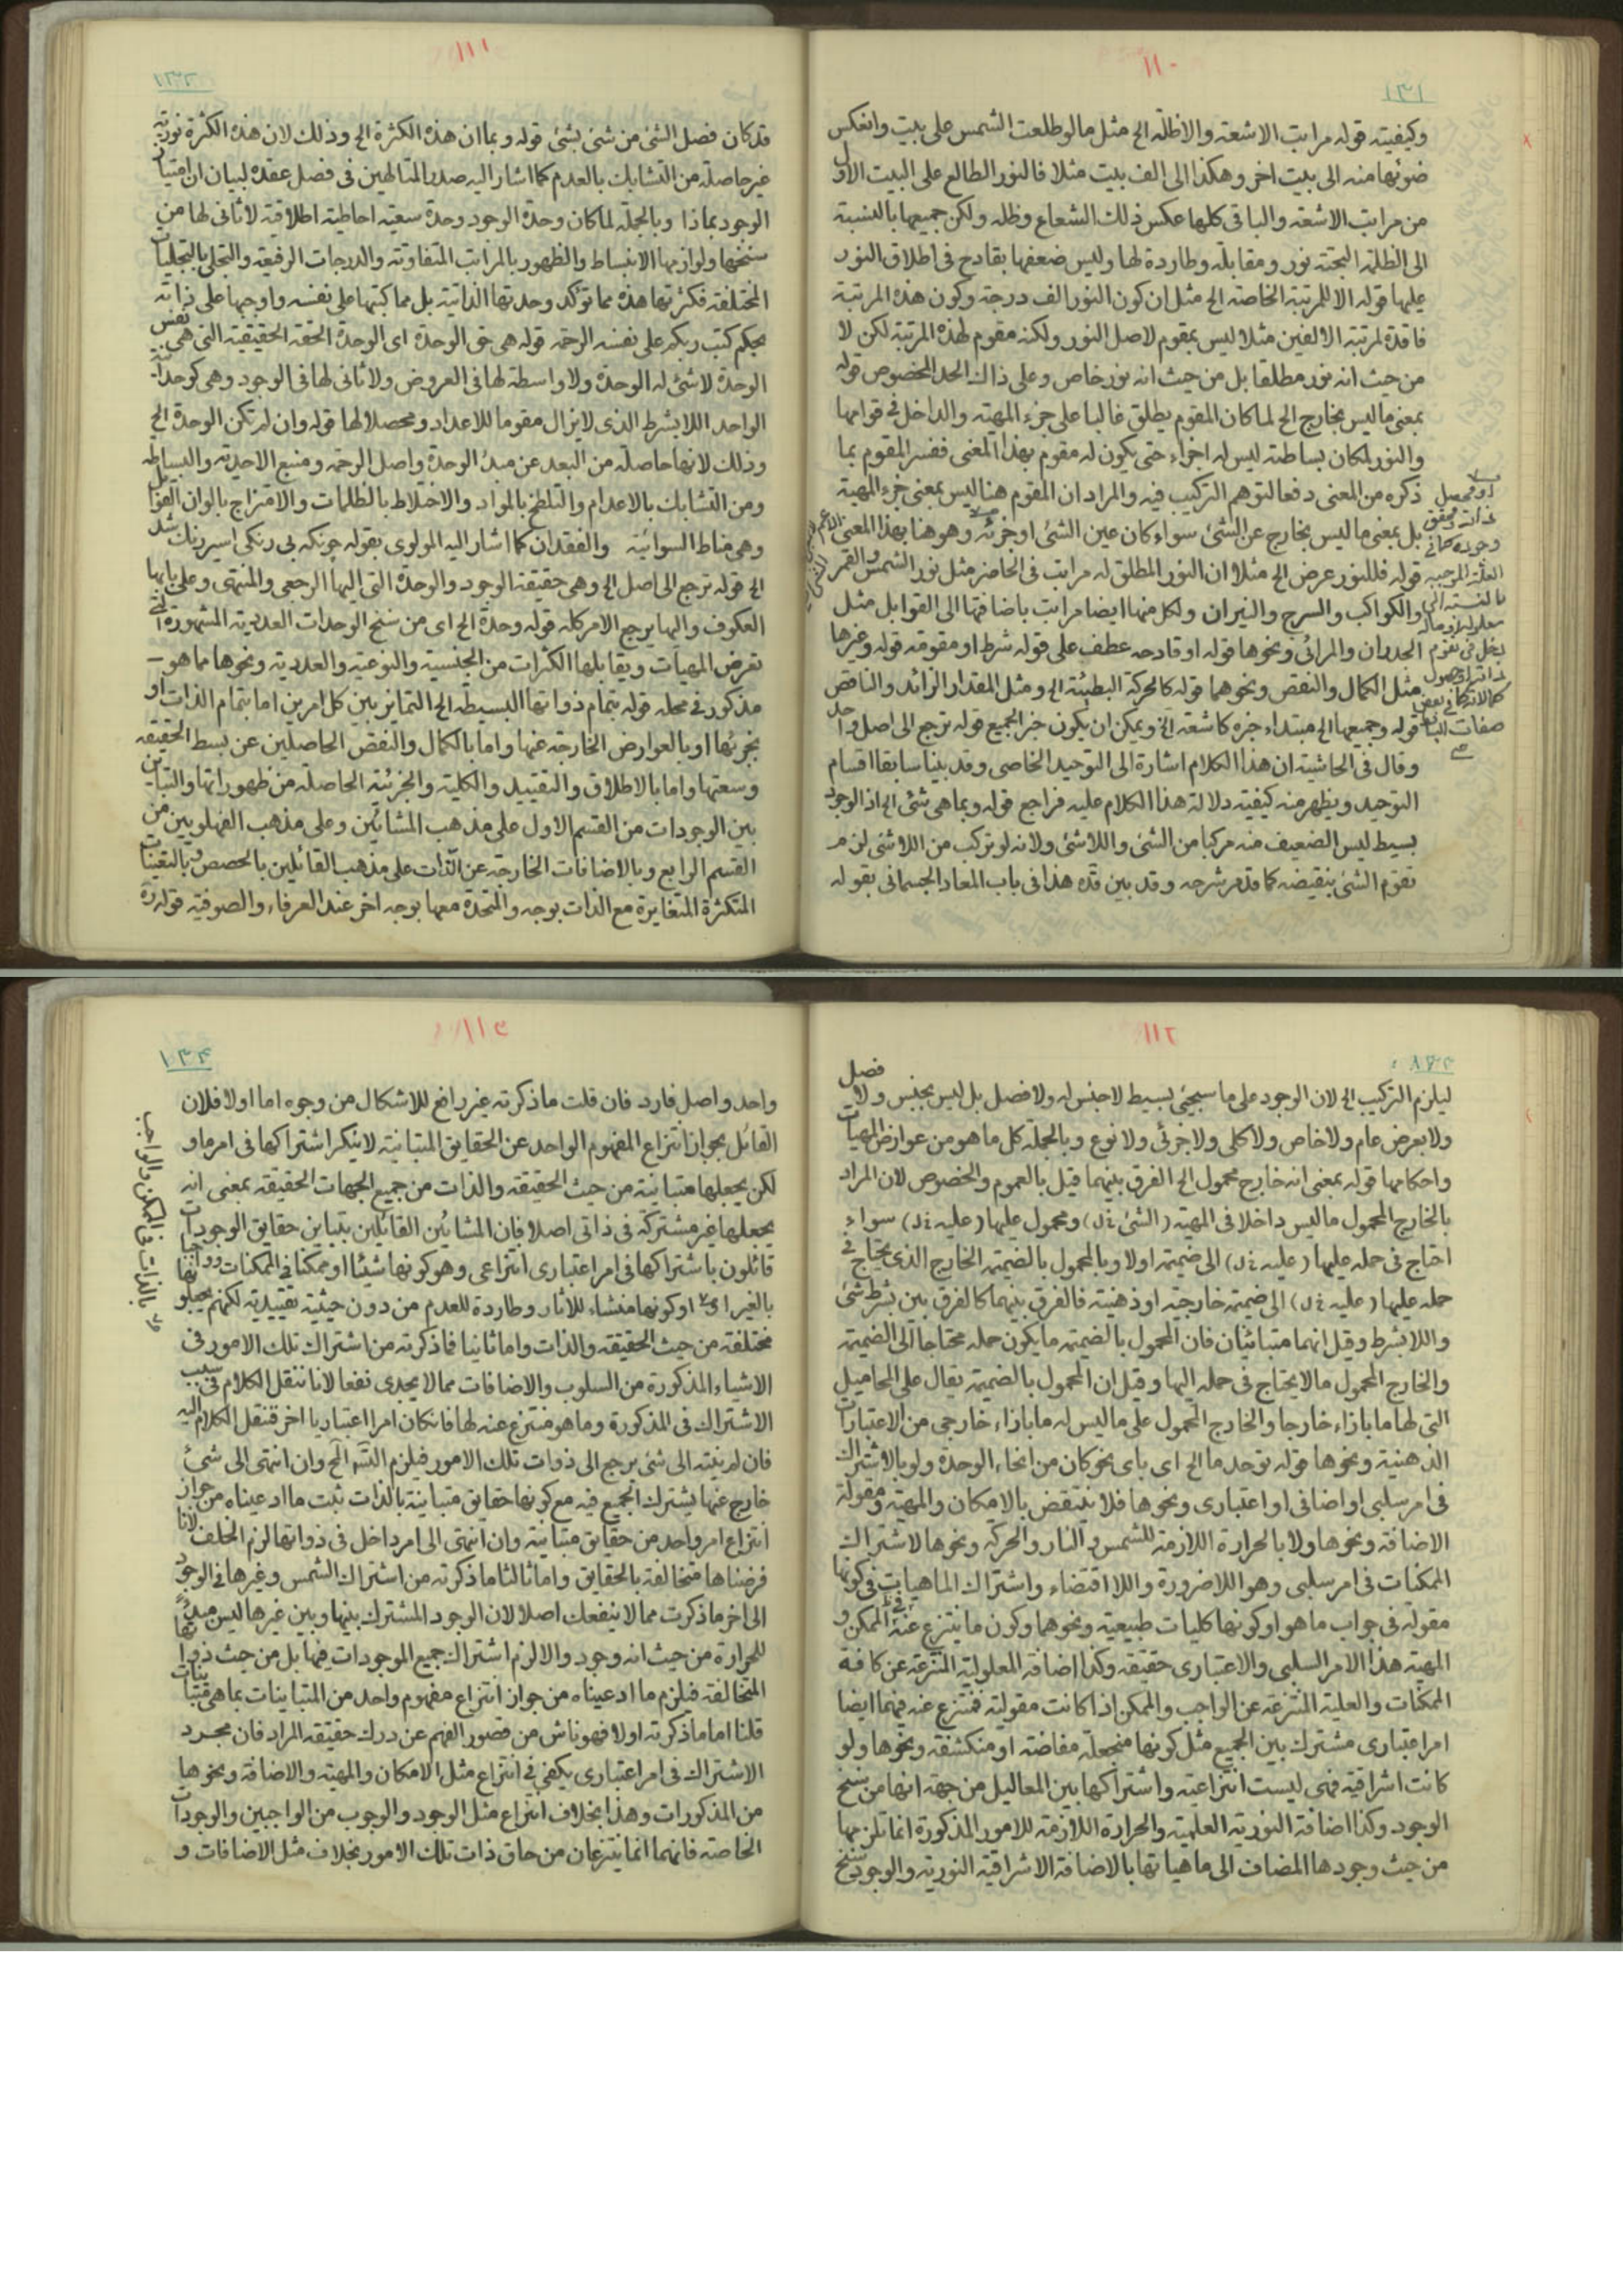 ١١٠
١٣١
وكيفيته قوله مراتب الاشعة والاظلة الخ مثل ما لو طلعت الشمس على بيت وانعكس
ضوئها منه الى بيت اخر وهكذا الى الف بيت مثلا فالنور الطالع على البيت الاول
من مراتب الاشعة والباقى كلها عكس ذلك الشعاع وظله ولكن جميعها بالنسبة
الى الظلمة البحتة نور ومقابلة وطاردة لها وليس ضعفها بقادح فى اطلاق النور
عليها قوله الا للمرتبة الخاصة الخ مثل ان كون النور الف درجة وكون هذه المرتبة
فاقدة لمرتبة الالفين مثلا ليس بمقوم لاصل النور ولكنه مقوم لهذه المرتبة لكن لا
من حيث انه نور مطلقا بل من حيث انه نور خاص وعلى ذاك الحد المخصوص قوله
بمعنى ما ليس بخارج الخ لما كان المقوم يطلق غالبا على جزء المهية والداخل فى قوامها
والنور لمكان بساطته ليس له اجزاء حتى يكون له مقوم بهذا المعنى ففسر المقوم بما
ذكره من المعنى دفعا لتوهم التركيب فيه والمراد ان المقوم هنا ليس بمعنى جزء المهية
بل بمعنى ما ليس بخارج عن الشئ سواء كان عين الشئ او جزئه وهو هنا بهذا المعنى الاعم
قوله فللنور عرض الخ مثلا ان النور المطلق له مراتب فى الحاضر مثل نور الشمس والقمر
والكواكب والسرج والنيران ولكل منها ايضا مراتب باضافتها الى القوابل مثل
الجدران والمرائى ونحوها قوله او قادحه عطف على قوله شرط او مقومة قوله وغيرها
مثل الكمال والنقص ونحوهما قوله كالحركة البطيئة الخ ومثل المقدار الزائد والناقص
قوله وجميعها الخ مبتداء خبره كاشعة الخ ويمكن ان يكون خبر الجميع قوله ترجع الى اصل واحد
وقال فى الحاشية ان هذا الكلام اشارة الى التوحيد الخاصى وقد بينا سابقا اقسام
التوحيد ويظهر منه كيفية دلالة هذا الكلام عليه فراجع قوله وبما هى شئ الخ اذ الوجود
بسيط ليس الضعيف منه مركبا من الشئ واللاشئ ولانه لو تركب من اللاشئ لزم
تقوم الشئ بنقيضه كما قد مر شرحه وقد بين قده هذا فى باب المعاد الجسمانى بقوله
او محصل
ذاته ومحقق
وجوده كما فى
العلة الموجبة
بالنسبة الى
صفات
١١١
١٣٢
قد كان فصل الشئ من شئ بشئ قوله وبما ان هذه الكثرة الخ وذلك لان هذه الكثرة نورية
غير حاصلة من التشابك بالعدم كما اشار اليه صدر المتالهين فى فصل عقده لبيان ان امتياز
الوجود بماذا وبالجملة لما كان وحدة الوجود وحدة سعية احاطية اطلاقية لا ثانى لها من
سنخها ولوازمها الانبساط والظهور بالمراتب المتفاوتة والدرجات الرفيعة والتجلى بالتجليات
المختلفة فكثرتها هذه مما توكد وحدتها الذاتية بل مما كتبها على نفسه واوجبها على ذاته
بحكم كتب ربكم على نفسه الرحمة قوله هى حق الوحدة اى الوحدة الحقة الحقيقية التى هى نفس
الوحدة لا شئ له الوحدة ولا واسطة لها فى العروض ولا ثانى لها فى الوجود وهى كوحدة
الواحد اللابشرط الذى لا يزال مقوما للاعداد ومحصلا لها قوله وان لم تكن الوحدة الخ
وذلك لانها حاصلة من البعد عن مبدء الوحدة واصل الرحمة ومنبع الاحدية والبساطة
ومن التشابك بالاعدام والتلطخ بالمواد والاختلاط بالظلمات والامتزاج بالوان
وهى مناط السوائية والفقدان كما اشار اليه المولوى بقوله چونكه بى رنگى اسير رنگ شد
الخ قوله ترجع الى اصل الخ وهى حقيقة الوجود والوحدة التى اليها الرجعى والمنتهى وعلى بابها
العكوف واليها يرجع الامر كله قوله وحدة الخ اى من سنخ الوحدات العددية المشهورة التى
تعرض المهيات ويقابلها الكثرات من الجنسية والنوعية والعددية ونحوها مما هو
مذكور فى محله قوله بتمام ذواتها البسيطة الخ التمايز بين كل امرين اما بتمام الذات او
بجزئها او بالعوارض الخارجة عنها واما بالكمال والنقص الحاصلين عن بسط الحقيقة
وسعتها واما بالاطلاق والتقييد والكلية والجزئية الحاصلة من ظهوراتها والتباين
بين الوجودات من القسم الاول على مذهب المشائين وعلى مذهب الفهلويين من
القسم الرابع وبالاضافات الخارجة عن الذات على مذهب القائلين بالحصص وبالتعينات
المتكثرة المتغايرة مع الذات بوجه والمتحدة معها بوجه اخر عند العرفاء والصوفية قوله
١١٢
ليلزم التركيب الخ لان الوجود على ما سيجئ بسيط لا جنس له ولا فصل بل ليس بجنس ولا فصل
ولا بعرض عام ولا خاص ولا كلى ولا جزئى ولا نوع وبالجملة كل ما هو من عوارض المهيات
واحكامها قوله بمعنى انه خارج محمول الخ الفرق بينهما قيل بالعموم والخصوص لان المراد
بالخارج المحمول ما ليس داخلا فى المهية (الشئ خ ل) ومحمول عليها (عليه خ ل) سواء
احتاج فى حمله عليها (عليه خ ل) الى ضميمة اولا وبالمحمول بالضميمة الخارج الذى يحتاج فى
حمله عليها (عليه خ ل) الى ضميمة خارجية او ذهنية فالفرق بينهما كالفرق بين بشرط شئ
واللابشرط وقيل انهما متباينان فان المحمول بالضميمة ما يكون حمله محتاجا الى الضميمة
والخارج المحمول ما لا يحتاج فى حمله اليها وقيل ان المحمول بالضميمة يقال على المحاميل
التى لها ما بازاء خارجا والخارج المحمول على ما ليس له ما بازاء خارجى من الاعتبارات
الذهنية ونحوها قوله توحد ما الخ اى باى نحو كان من انحاء الوحدة ولو بالاشتراك
فى امر سلبى او اضافى او اعتبارى ونحوها فلا ينتقض بالامكان والمهية ومقولة
الاضافة ونحوها ولا بالحرارة اللازمة للشمس والنار والحركة ونحوها لاشتراك
الممكنات فى امر سلبى وهو اللاضرورة واللااقتضاء واشتراك الماهيات فى كونها
مقولة فى جواب ما هو او كونها كليات طبيعية ونحوهما وكون ما ينتزع عنه الممكن و
المهية هذا الامر السلبى والاعتبارى حقيقة وكذا اضافة المعلولية المنتزعة عن كافة
الممكنات والعلية المنتزعة عن الواجب والممكن اذا كانت مقولية فمنتزع عنه فيهما ايضا
امر اعتبارى مشترك بين الجميع مثل كونها منجعلة مفاضة او منكشفة ونحوها ولو
كانت اشراقية فهى ليست انتزاعية واشتراكها بين المعاليل من جهة انها من سنخ
الوجود وكذا اضافة النورية العلمية والحرارة اللازمة للامور المذكورة انما تلزمها
من حيث وجودها المضاف الى ماهياتها بالاضافة الاشراقية النورية والوجود سنخ
١١٣
١٣٤
واحد واصل فارد فان قلت ما ذكرته غير رافع للاشكال من وجوه اما اولا فلان
القائل بجواز انتزاع المفهوم الواحد عن الحقايق المتباينة لا ينكر اشتراكها فى امر ما و
لكن يجعلها متباينة من حيث الحقيقة والذات من جميع الجهات الحقيقة بمعنى انه
يجعلها غير مشتركة فى ذاتى اصلا فان المشائين القائلين بتباين حقايق الوجودات
قائلون باشتراكها فى امر اعتبارى انتزاعى وهو كونها شيئا او ممكنا فى الممكنات وواجبا
بالغير او كونها منشاء للاثار وطاردة للعدم من دون حيثية تقييدية لكنهم يجعلونها
مختلفة من حيث الحقيقة والذات واما ثانيا فما ذكرته من اشتراك تلك الامور فى
الاشياء المذكورة من السلوب والاضافات مما لا يجدى نفعا لانا ننقل الكلام فى سبب
الاشتراك فى المذكورة وما هو منتزع عنه لها فان كان امرا اعتباريا اخر فننقل الكلام اليه
فان لم ينته الى شئ يرجع الى ذوات تلك الامور فيلزم التسـ الخ وان انتهى الى شئ
خارج عنها يشترك الجميع فيه مع كونها حقايق متباينة بالذات ثبت ما ادعيناه من جواز
انتزاع امر واحد من حقايق متباينة وان انتهى الى امر داخل فى ذواتها لزم الخلف لانا
فرضناها متخالفة بالحقايق واما ثالثا ما ذكرته من اشتراك الشمس وغيرها فى الوجود
الى اخر ما ذكرت مما لا ينفعك اصلا لان الوجود المشترك بينها وبين غيرها ليس مبدء
للحرارة من حيث انه وجود والا لزم اشتراك جميع الموجودات فيها بل من حيث ذواتها
المتخالفة فيلزم ما ادعيناه من جواز انتزاع مفهوم واحد من المتباينات بما هى متباينات
قلنا اما ما ذكرته اولا فهو ناش من قصور الفهم عن درك حقيقة المراد فان مجرد
الاشتراك فى امر اعتبارى يكفى فى انتزاع مثل الامكان والمهية والاضافة ونحوها
من المذكورات وهذا بخلاف انتزاع مثل الوجود والوجوب من الواجبين والوجودات
الخاصة فانهما انما ينتزعان من حاق ذات تلك الامور بخلاف مثل الاضافات و